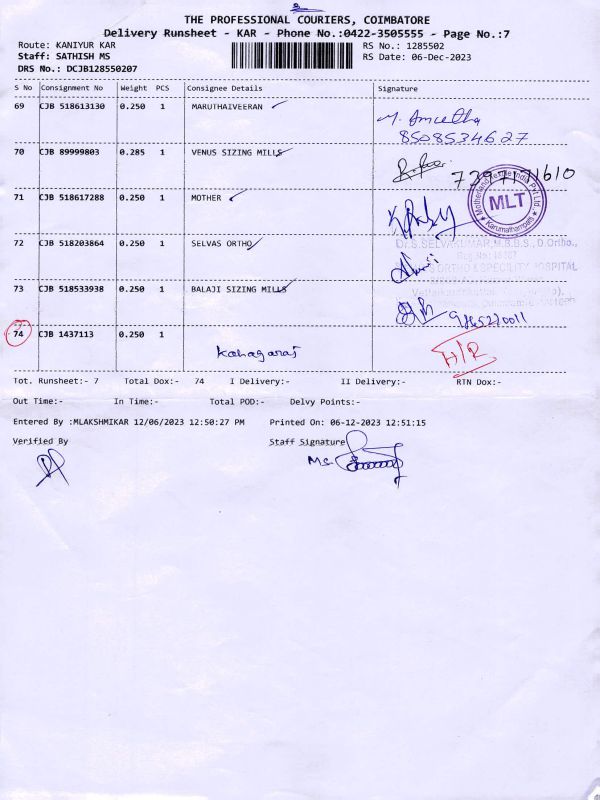 THE PROFESSIONAL COURIERS, COIMBATORE
Delivery Runsheet - KAR - Phone No.:0422-3505555 - Page No.:7
Route: KANIYUR KAR RS No.: 1285502
Staff: SATHISH MS RS Date: 06-Dec-2023
DRS No.: DCJB128550207
S No Consignment No Weight PCS Consignee Details Signature
69 CJB 518613130 0.250 1 MARUTHAIVEERAN
8508534627
70 CJB 89999803 0.285 1 VENUS SIZING MILLS
71 CJB 518617288 0.250 1 MOTHER
MLT
72 CJB 518203864 0.250 1 SELVAS ORTHO
Dr.S.SELVAKUMAR,M.B.B.S.,D.Ortho.,
ORTHO & SPECILITY HOSPITAL
73 CJB 518533938 0.250 1 BALAJI SIZING MILLS
74 CJB 1437113 0.250 1
Tot. Runsheet:- 7 Total Dox:- 74 I Delivery:- II Delivery:- RTN Dox:-
Out Time:- In Time:- Total POD:- Delvy Points:-
Entered By :MLAKSHMIKAR 12/06/2023 12:50:27 PM Printed On: 06-12-2023 12:51:15
Verified By Staff Signature